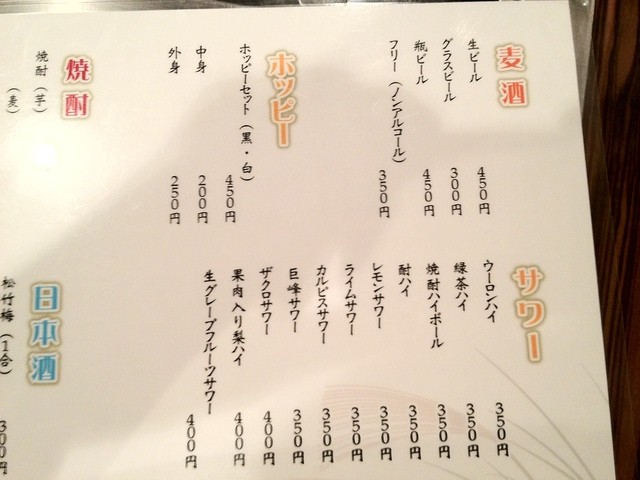 麦酒
生ビール 450円
グラスビール 300円
瓶ビール 450円
フリー(ノンアルコール) 350円
ホッピー
ホッピーセット(黒・白) 450円
中身 200円
外身 250円
焼酎
焼酎(芋)
(麦)
サワー
ウーロンハイ 350円
緑茶ハイ 350円
焼酎ハイボール 350円
酎ハイ 350円
レモンサワー 350円
ライムサワー 350円
カルピスサワー 350円
巨峰サワー 350円
ザクロサワー 400円
果肉入り梨ハイ 400円
生グレープフルーツサワー 400円
日本酒
松竹梅(1合) 300円